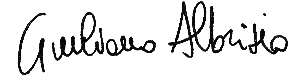 Giuliano Albrisio